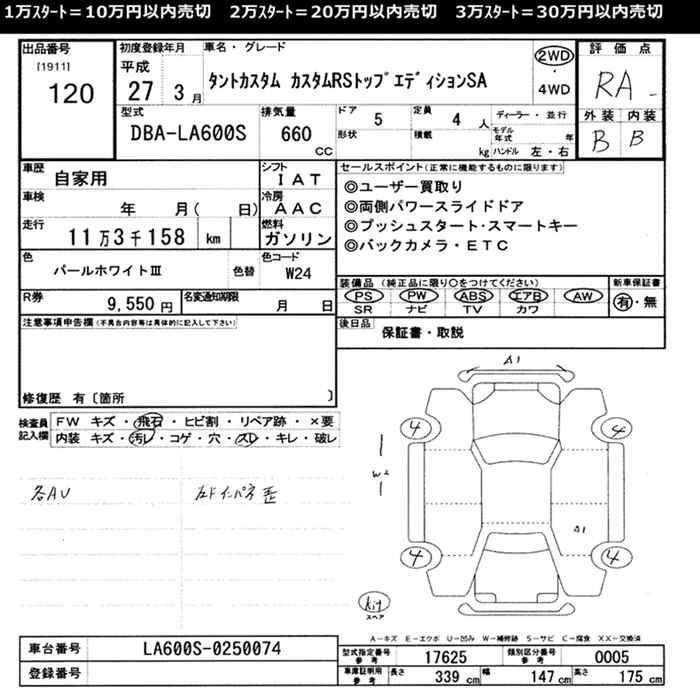 1万ｽﾀｰﾄ＝10万円以内売切　2万ｽﾀｰﾄ＝20万円以内売切　3万ｽﾀｰﾄ＝30万円以内売切
出品番号
[1911]
120
初度登録年月
平成
27 3月
車名・グレード
タントカスタム カスタムRSトップエディションSA
2WD
・
4WD
評価点
RA
外装 内装
B B
型式
DBA-LA600S
排気量
660 cc
ドア 5
形状
定員 4 人
積載 kg
ディーラー・並行
モデル年式 年
ハンドル 左・右
車歴
自家用
シフト
IAT
車検
年 月( 日)
冷房
AAC
走行
11万3千158 km
燃料
ガソリン
セールスポイント(正常に機能するものに限ります)
◎ユーザー買取り
◎両側パワースライドドア
◎プッシュスタート・スマートキー
◎バックカメラ・ETC
色
パールホワイトⅢ
色替
色コード
W24
装備品 (純正品に限り○をつけてください)
PS PW ABS エアB AW
SR ナビ TV カワ
新車保証書
有・無
R券
9,550 円
名変通知期限
月 日
後日品
保証書・取説
注意事項申告欄(不具合内容等は具体的に記入して下さい)
修復歴 有〔箇所 〕
検査員
記入欄
FW キズ・飛石・ヒビ割・リペア跡・×要
内装 キズ・汚レ・コゲ・穴・スレ・キレ・破レ
各AU
A1
4
4
W2
A1
4
4
Kit
スペア
A－キズ E－エクボ U－凹み W－補修跡 S－サビ C－腐食 XX－交換済
車台番号
LA600S-0250074
登録番号
型式指定番号
参考
17625
類別区分番号
参考
0005
車庫証明用
参考
長さ 339 cm 幅 147 cm 高さ 175 cm